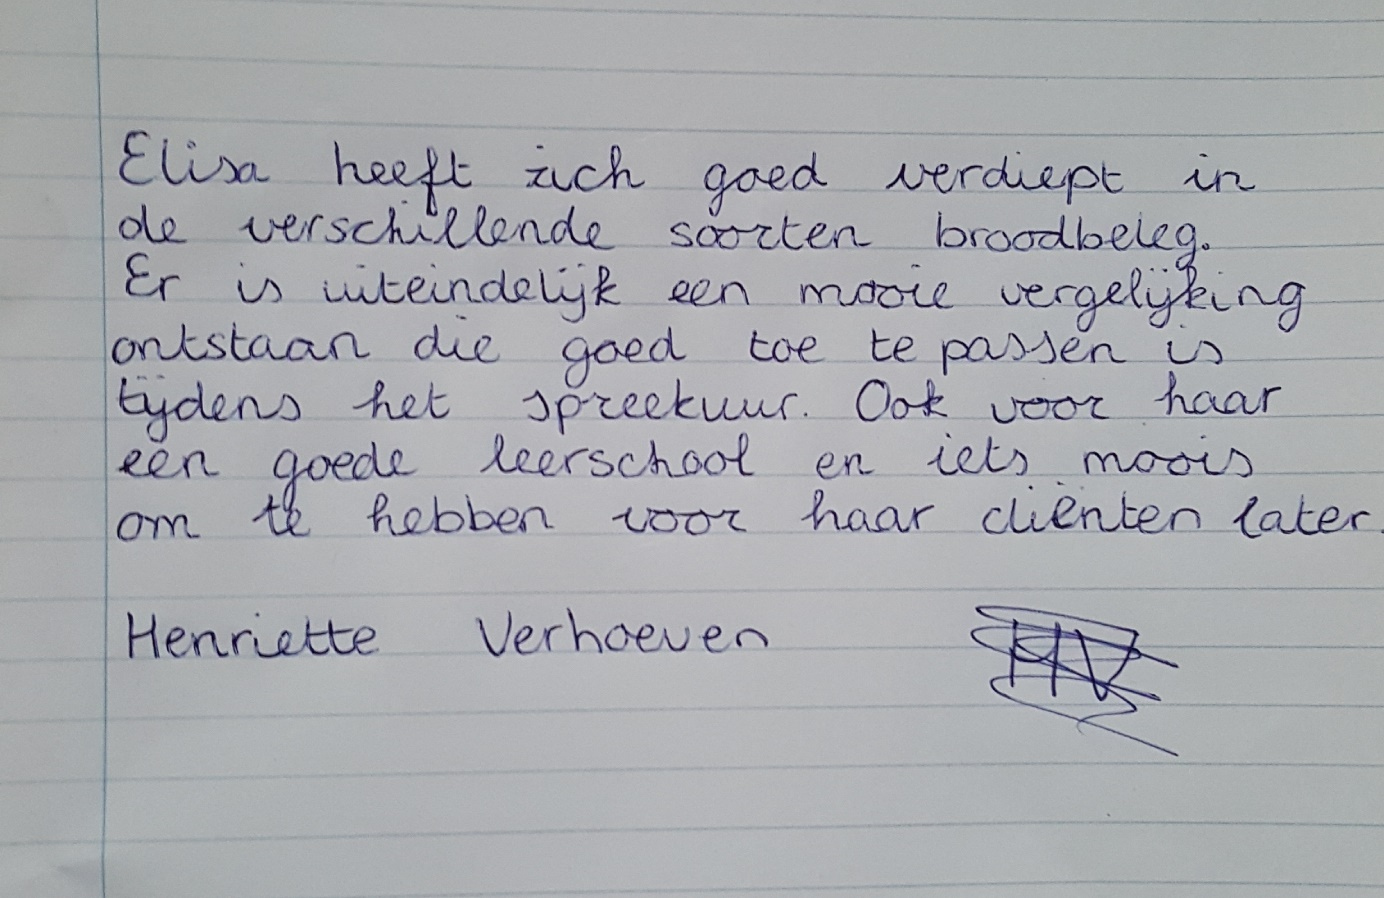 Elisa heeft zich goed verdiept in
de verschillende soorten broodbeleg.
Er is uiteindelijk een mooie vergelijking
ontstaan die goed toe te passen is
tijdens het spreekuur. Ook voor haar
een goede leerschool en iets moois
om te hebben voor haar cliënten later.
Henriette Verhoeven HV